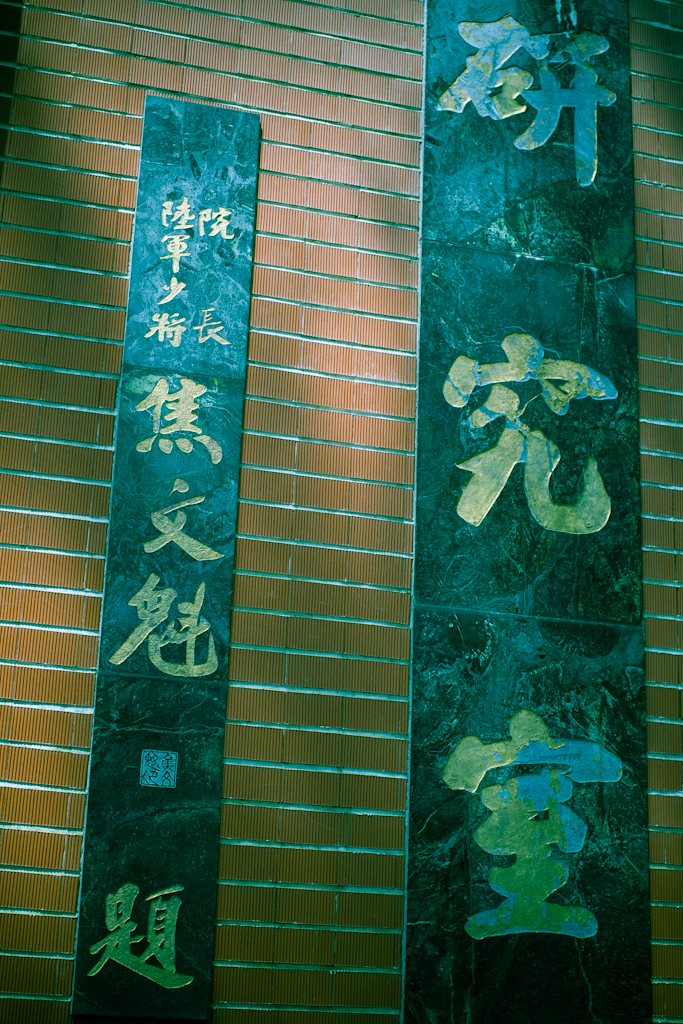 研究室
院長
陸軍少將
焦文魁
題